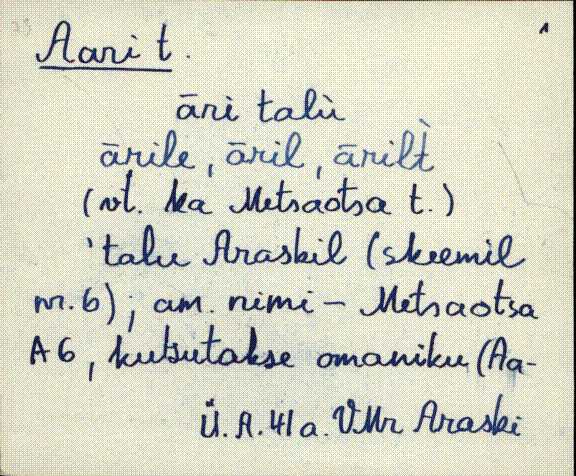 Aari t.
āri talù
ārile, āril, ārilt̀
(vt. ka Metsaotsa t.)
'talu Araskil (skeemil
nr. 6); am. nimi - Metsaotsa
A6, kutsutakse omaniku (Aa-
Ü. A. 41a. VMr Araski